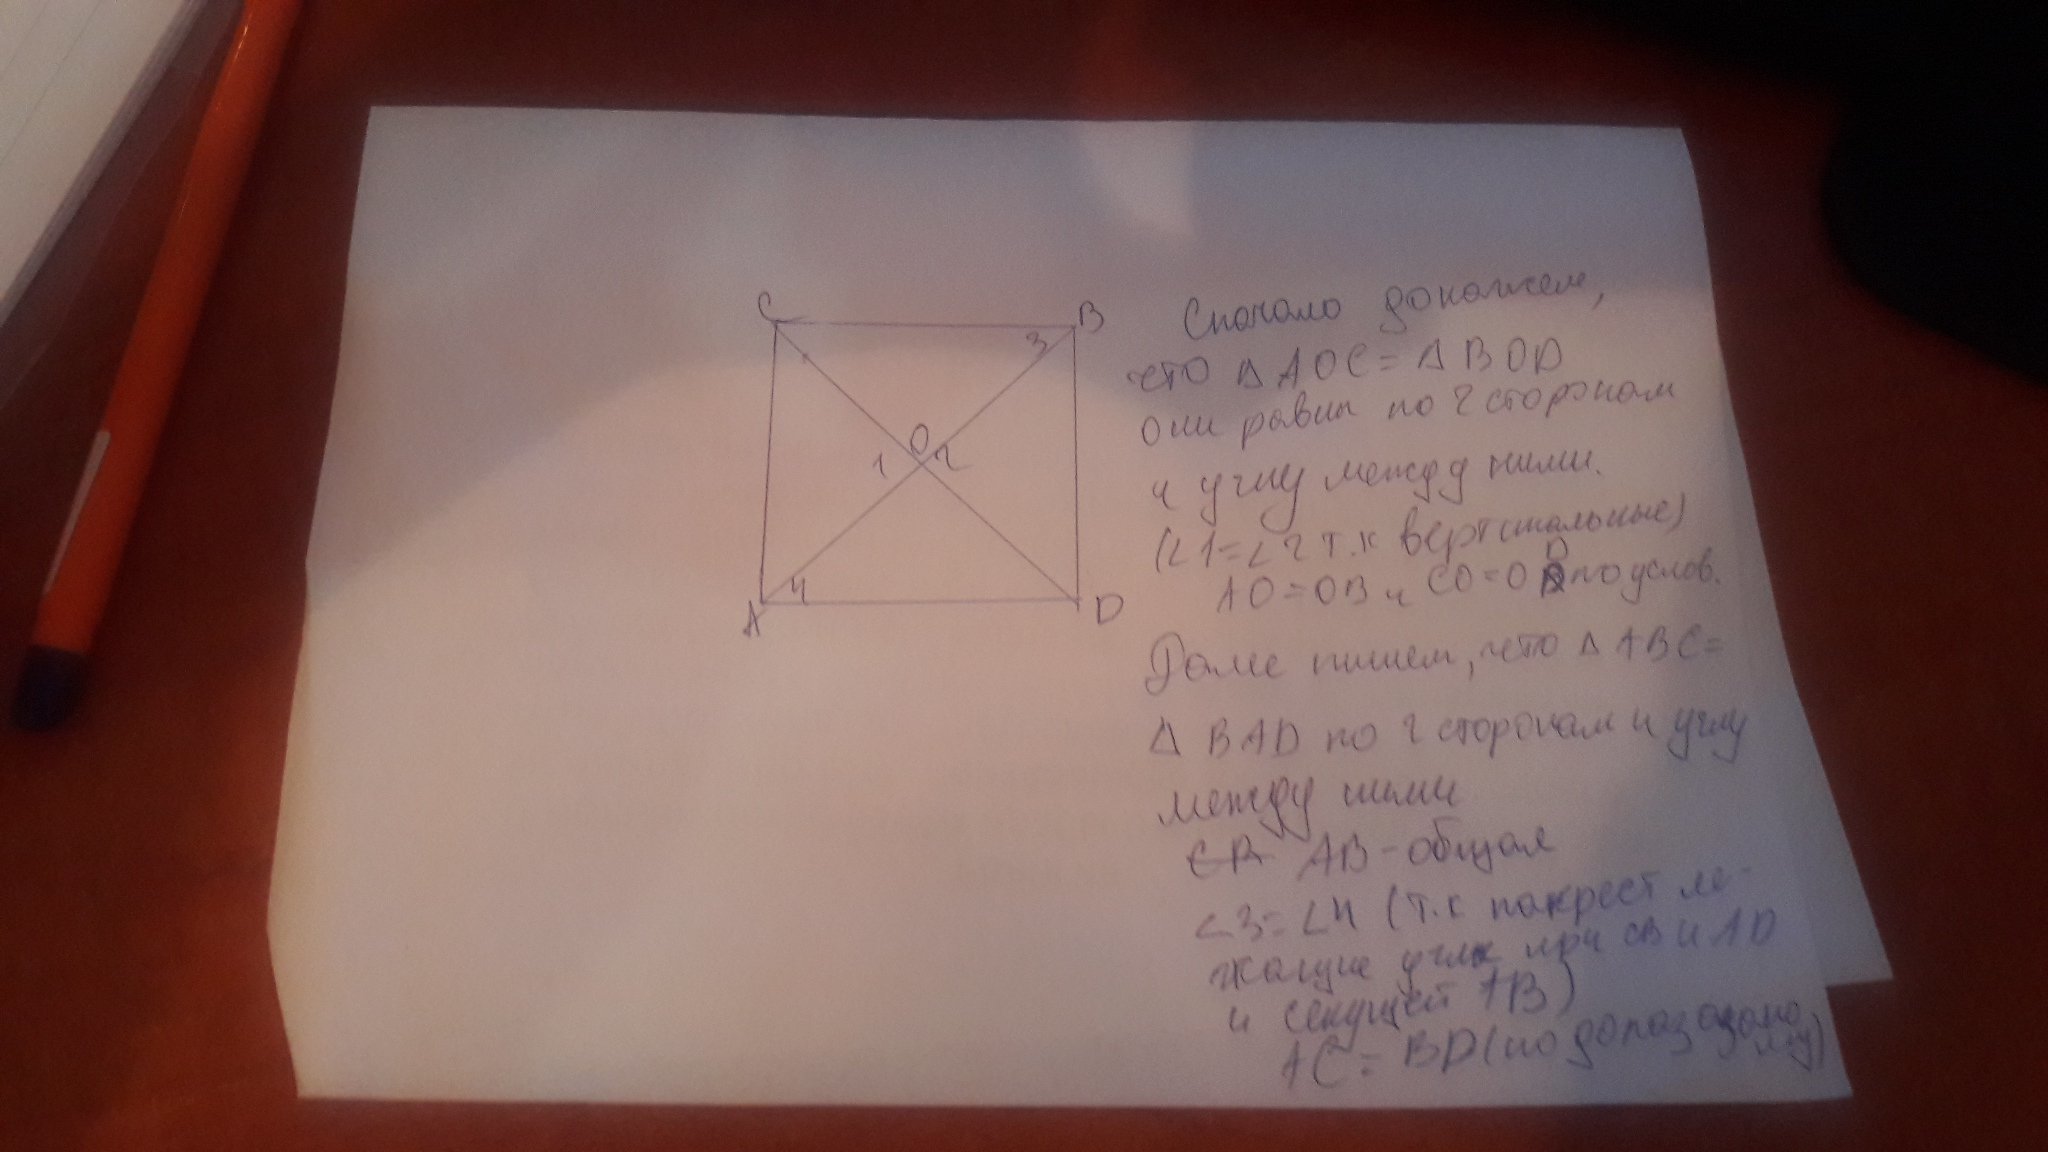 C
B
3
O
1
2
4
A
D
Сначало докажем,
что Δ AOC = Δ BOD
они равны по 2 сторонам
и углу между ними.
(∠1=∠2 т.к вертикальные)
AO=OB и CO=OD по услов.
Далее пишем, что Δ ABC =
Δ BAD по 2 сторонам и углу
между ними
AB - общая
∠3=∠4 (т.к накрест ле-
жащие углы при CB и AD
и секущей AB)
AC = BD (по доказаному)